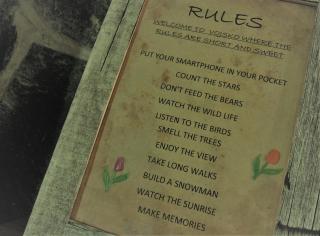 RULES
WELCOME TO VOJSKO WHERE THE
RULES ARE SHORT AND SWEET
PUT YOUR SMARTPHONE IN YOUR POCKET
COUNT THE STARS
DON'T FEED THE BEARS
WATCH THE WILD LIFE
LISTEN TO THE BIRDS
SMELL THE TREES
ENJOY THE VIEW
TAKE LONG WALKS
BUILD A SNOWMAN
WATCH THE SUNRISE
MAKE MEMORIES